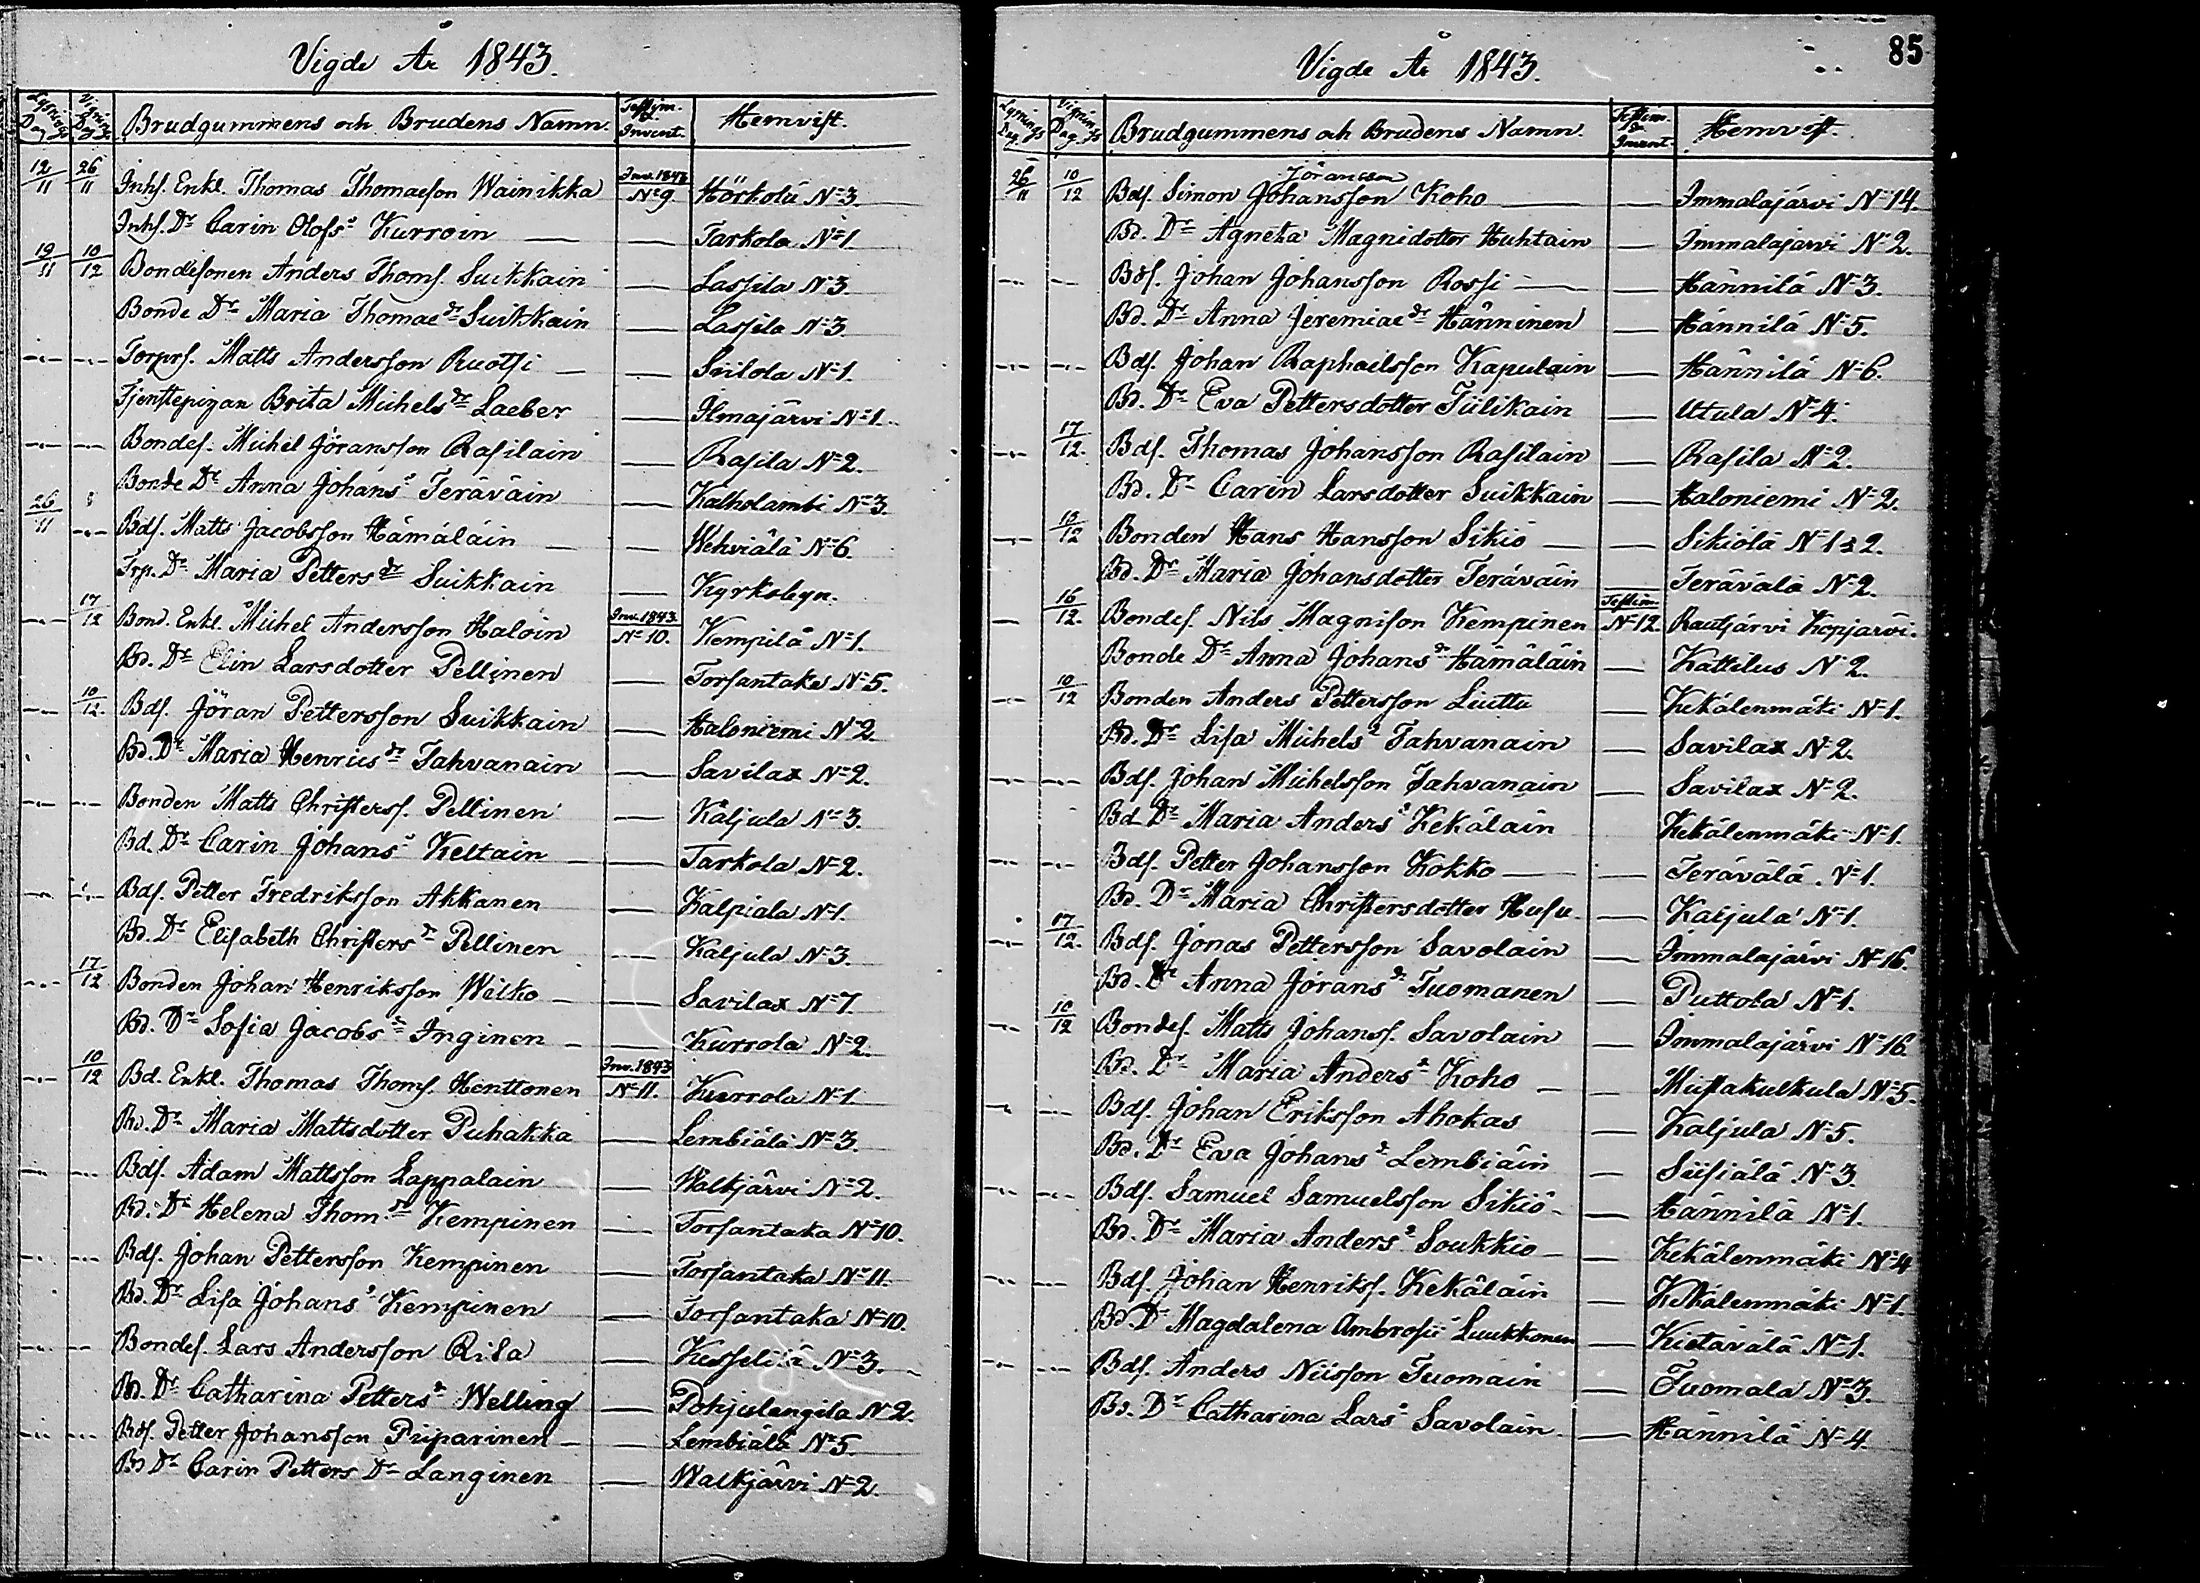 Vigde År 1843.
Lysnings Dag Vignings Dag Brudgummens och Brudens Namn. Testim. & Invent. Hemvist.
12/11 26/11 Inhs. Enkl. Thomas Thomasson Wainikka Inv. 1843 No 9. Hörkölä No 3.
Inhs. Dr Carin Olofs Kurroin — — Tarkola No 1.
19/11 10/12 Bondesonen Anders Thoms. Suikkain — Lassila No 3.
Bonde Dr Maria Thomae dr Suikkain — Lassila No 3.
-"- -"- Torprs. Matts Andersson Ruotsi — — Svilola No 1.
Tjenstepigan Brita Michels dr Laeber — Ilmajärvi No 1.
-"- -"- Bondes. Michel Jöransson Rasilain — Rasila No 2.
Bonde Dr Anna Johans dr Teräväin — Kalholambi No 3.
26/11 -"- Bds. Matts Jacobsson Hämäläin — — Wehviälä No 6.
Trp. Dr Maria Petters dr Suikkain — Kyrkobyn.
-"- 17/12 Bond. Enkl. Michel Andersson Haloin Inv. 1843. No 10. Kempilä No 1.
Bd. Dr Elin Larsdotter Pellinen — Torsantaka No 5.
-"- 10/12. Bds. Jöran Pettersson Suikkain — Haloniemi No 2.
Bd. Dr Maria Henrics dr Tahvanain — Savilax No 2.
-"- -"- Bonden Matts Christers. Pellinen — Kaljula No 3.
Bd. Dr Carin Johans dr Keltain — — Tarkola No 2.
-"- -"- Bds. Petter Fredriksson Akkanen — Kalpiala No 1.
Bd. Dr Elisabeth Christers dr Pellinen — Kaljula No 3.
-"- 17/12 Bonden Johan Henriksson Wilko — — Savilax No 7.
Bd. Dr Sofia Jacobs dr Inginen — — Kurrola No 2.
-"- 10/12 Bd. Enkl. Thomas Thoms. Henttonen Inv. 1843 No 11. Kurrola No 1.
Bd. Dr Maria Mattsdotter Puhakka — Lembiälä No 3.
-"- -"- Bds. Adam Mattsson Lappalain — Walkjärvi No 2.
Bd. Dr Helena Thom. dr Kempinen — Torsantaka No 10.
-"- -"- Bds. Johan Pettersson Kempinen — Torsantaka No 11.
Bd. Dr Lisa Johans dr Kempinen — Torsantaka No 10.
-"- -"- Bondes. Lars Andersson Rila — No 3.
Bd. Dr Catharina Petters dr Welling — Pohjulangila No 2.
-"- -"- Bds. Petter Johansson Piiparinen — — Lembiälä No 5.
Bd Dr Carin Petters Dr Langinen — Walkjärvi No 2.
85
Vigde År 1843.
Lysnings Dag Vignings Dag Brudgummens och Brudens Namn. Testim. & Invent. Hemvist.
Jöransson
26/11 10/12 Bds. Simon Johansson Koho — — Immalajärvi No 14.
Bd. Dr Agneta Magnidotter Huhtain — Immalajärvi No 2.
-"- -"- Bds. Johan Johansson Rossi — — Hännilä No 3.
Bd. Dr Anna Jeremiae dr Hänninen — Hännilä No 5.
-"- -"- Bds. Johan Raphaelsson Kapulain — Hännilä No 6.
Bd. Dr Eva Pettersdotter Tiilikain — Utula No 4.
-"- 17/12. Bds. Thomas Johansson Rasilain — Rasila No 2.
Bd. Dr Carin Larsdotter Suikkain — Haloniemi No 2.
-"- 10/12 Bonden Hans Hansson Sikiö — — Sikiölä No 1 & 2.
Bd. Dr Maria Johansdotter Teräväin — Terävälä No 2.
-"- 16/12. Bondes. Nils Magnison Kempinen Testim. No 12. Rautjärvi Kopjärvi.
Bonde Dr Anna Johans dr Hämäläin — Kattilus No 2.
-"- 10/12 Bonden Anders Pettersson Liuttu — Kekälenmäki No 1.
Bd. Dr Lisa Michels dr Tahvanain — Savilax No 2.
-"- -"- Bds. Johan Michelsson Tahvanain — Savilax No 2.
Bd Dr Maria Anders dr Kekäläin Kekälenmäki No 1.
-"- -"- Bds. Petter Johansson Kokko — — Terävälä No 1.
Bd. Dr Maria Christersdotter Hufu — Kaljula No 1.
-"- 17/12. Bds. Jonas Pettersson Savolain — Immalajärvi No 16.
Bd. Dr Anna Jörans dr Tuomanen — Puttola No 1.
-"- 10/12 Bondes. Matts Johanss. Savolain — Immalajärvi No 16.
Bd. Dr Maria Anders dr Koho — — Mustakulkula No 5.
-"- -"- Bds. Johan Eriksson Ahokas — Kaljula No 5.
Bd. Dr Eva Johans dr Lembiäin — Siisiälä No 3.
-"- -"- Bds. Samuel Samuelsson Sikiö — — Hännilä No 1.
Bd. Dr Maria Anders dr Soukkio — — Kekälenmäki No 4
-"- -"- Bds. Johan Henriks. Kekäläin — Kekälenmäki No 1.
Bd Dr Magdalena Ambrosii Luukkonen — Kietävälä No 1.
-"- -"- Bds. Anders Nilsson Tuomain — Tuomala No 3.
Bd. Dr Catharina Lars dr Savolain — — Hännilä No 4.